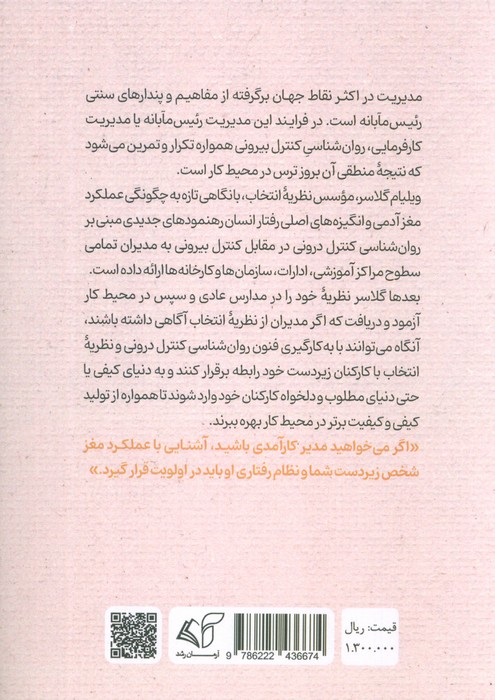 مدیریت در اکثر نقاط جهان برگرفته از مفاهیم و پندارهای سنتی
رئیس‌مآبانه است. در فرایند این مدیریت رئیس‌مآبانه یا مدیریت
کارفرمایی، روان‌شناسی کنترل بیرونی همواره تکرار و تمرین می‌شود
که نتیجهٔ منطقی آن بروز ترس در محیط کار است.
ویلیام گلاسر، مؤسس نظریهٔ انتخاب، با نگاهی تازه به چگونگی عملکرد
مغز آدمی و انگیزه‌های اصلی رفتار انسان رهنمودهای جدیدی مبنی بر
روان‌شناسی کنترل درونی در مقابل کنترل بیرونی به مدیران تمامی
سطوح مراکز آموزشی، ادارات، سازمان‌ها و کارخانه‌ها ارائه داده است.
بعدها گلاسر نظریهٔ خود را در مدارس عادی و سپس در محیط کار
آزمود و دریافت که اگر مدیران از نظریهٔ انتخاب آگاهی داشته باشند،
آنگاه می‌توانند با به‌کارگیری فنون روان‌شناسی کنترل درونی و نظریهٔ
انتخاب با کارکنان زیردست خود رابطه برقرار کنند و به دنیای کیفی یا
حتی دنیای مطلوب و دلخواه کارکنان خود وارد شوند تا همواره از تولید
کیفی و کیفیت برتر در محیط کار بهره ببرند.
«اگر می‌خواهید مدیر کارآمدی باشید، آشنایی با عملکرد مغز
شخص زیردست شما و نظام رفتاری او باید در اولویت قرار گیرد.»
قیمت: ریال
۱.۳۰۰.۰۰۰
9 786222 436674
آرمان رشد